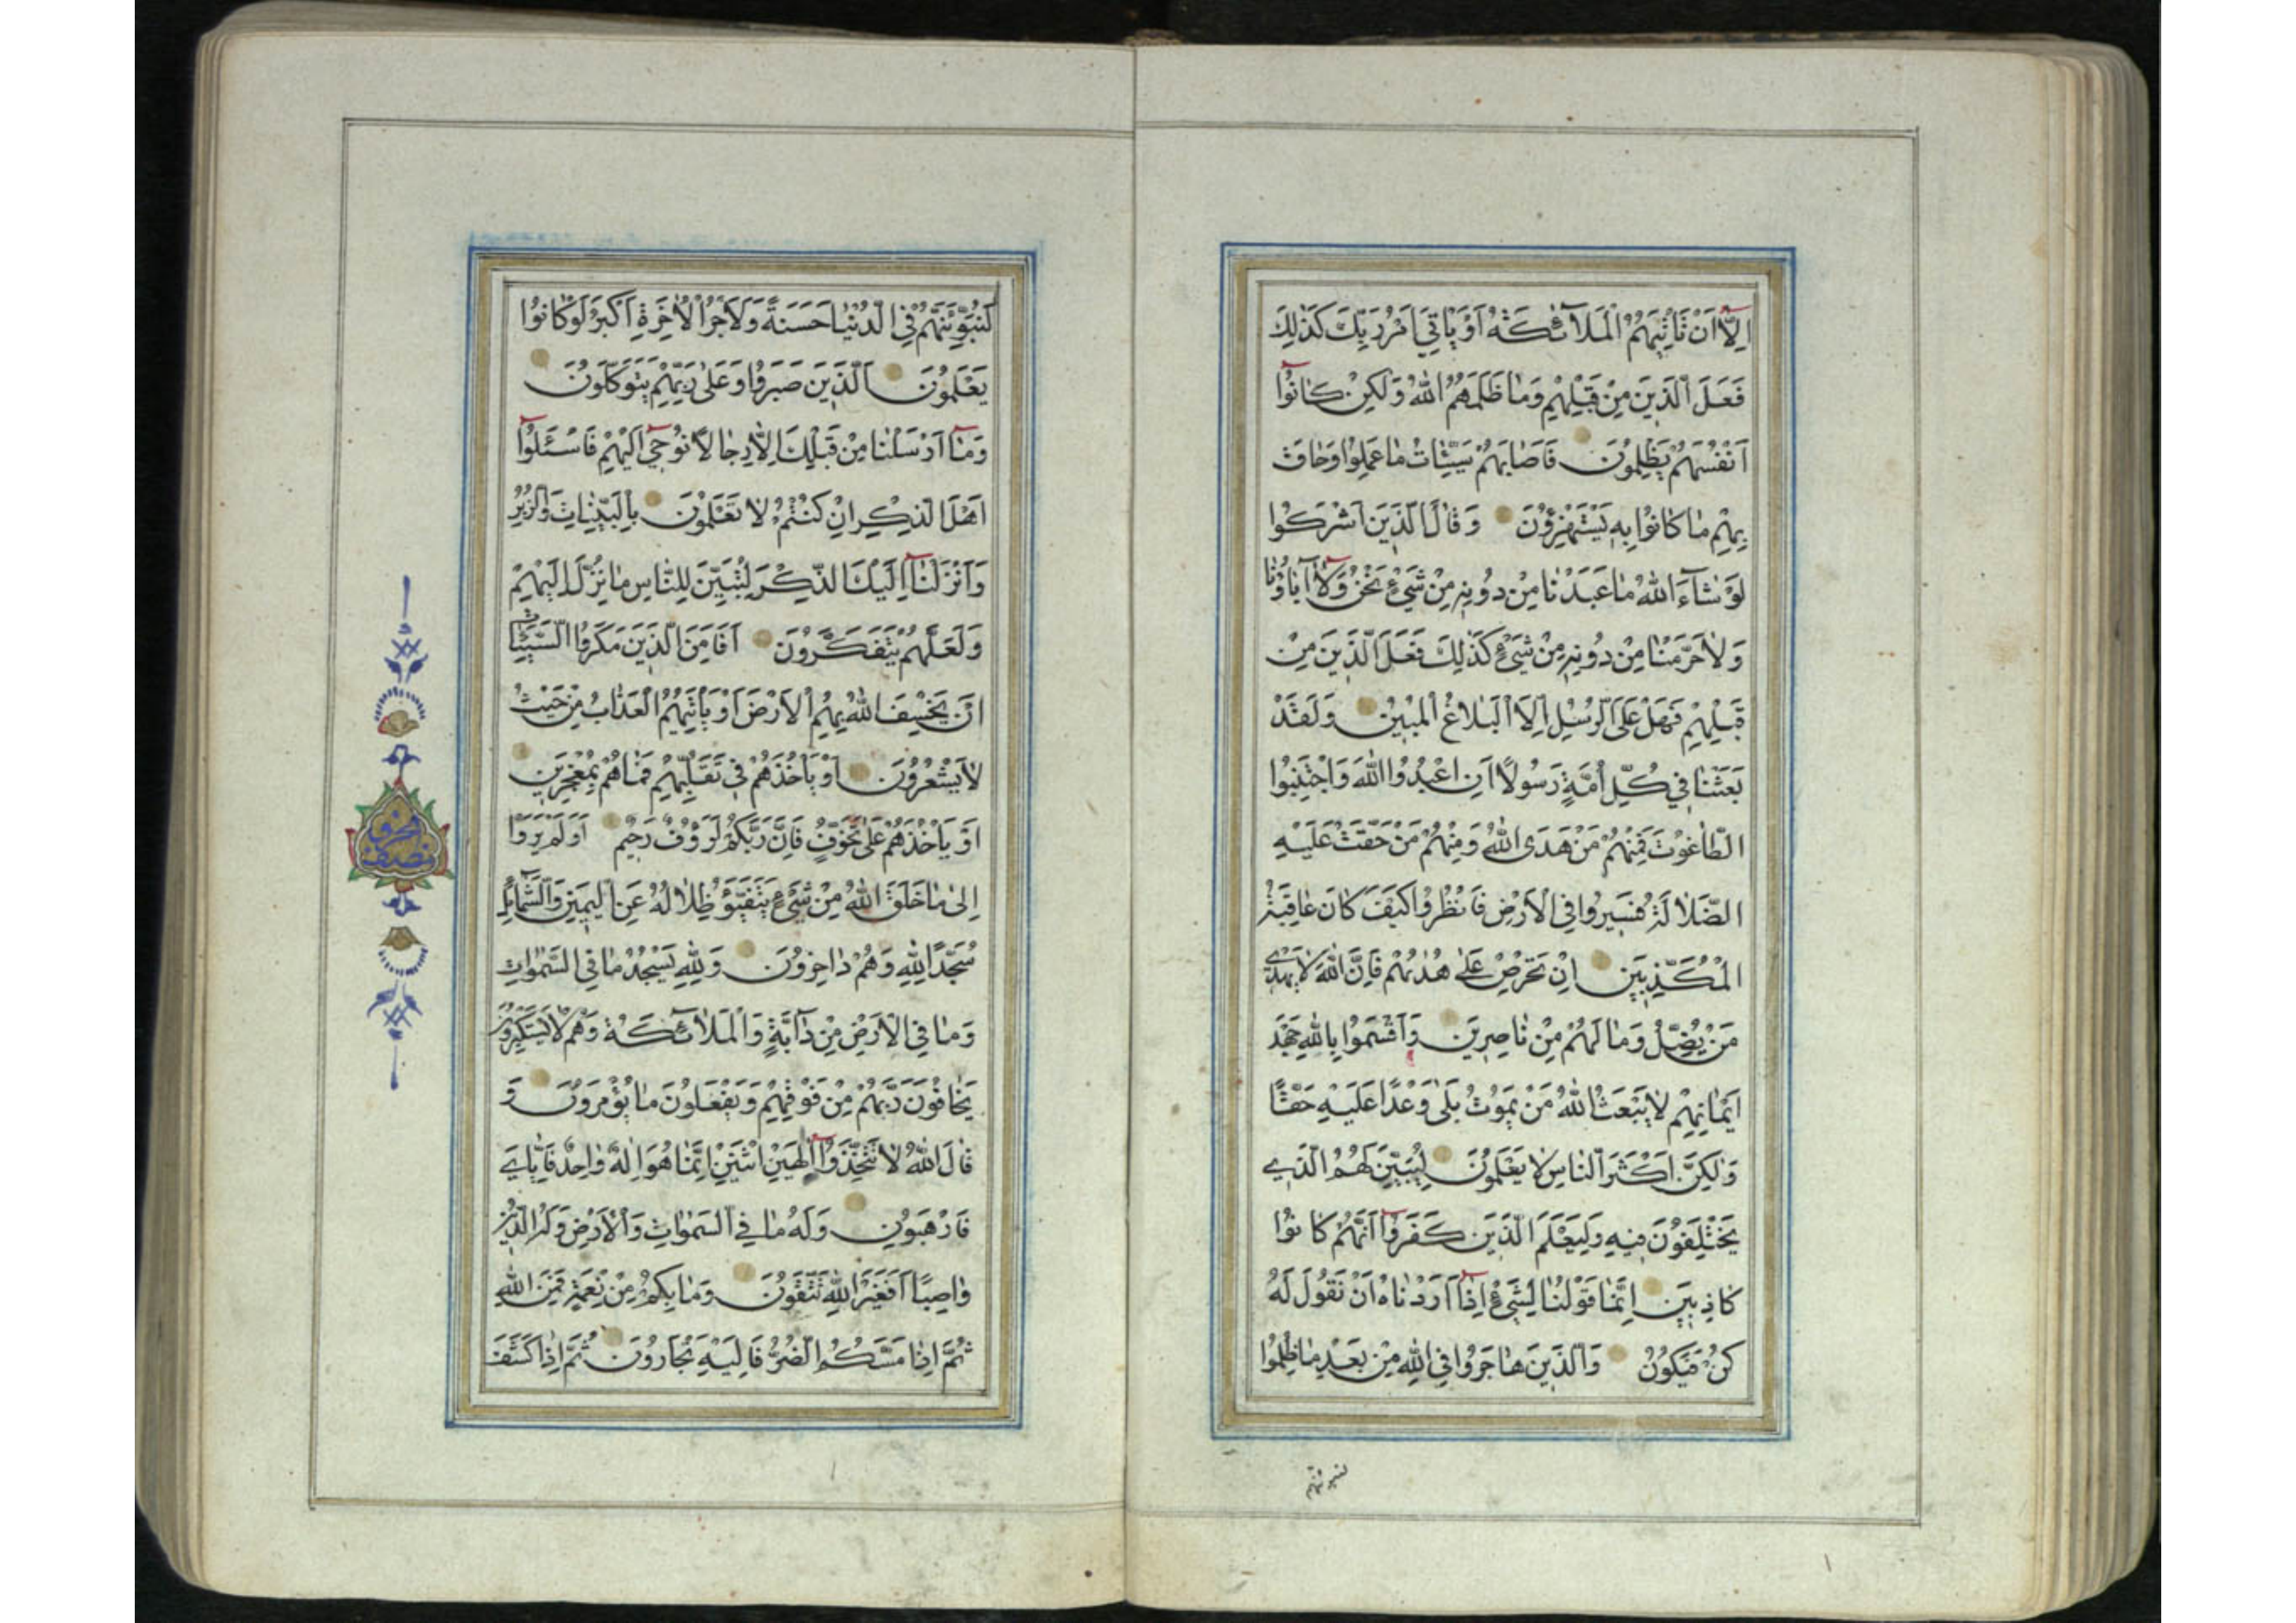 اِلَّآ اَنْ تَاْتِيَهُمُ الْمَلَآئِكَةُ اَوْ يَاْتِيَ اَمْرُ رَبِّكَ كَذٰلِكَ
فَعَلَ الَّذِينَ مِنْ قَبْلِهِمْ وَمَا ظَلَمَهُمُ اللّٰهُ وَلٰكِنْ كَانُوٓا
اَنْفُسَهُمْ يَظْلِمُونَ فَاَصَابَهُمْ سَيِّئَاتُ مَا عَمِلُوا وَحَاقَ
بِهِمْ مَا كَانُوا بِهِ يَسْتَهْزِؤُنَ وَقَالَ الَّذِينَ اَشْرَكُوا
لَوْ شَآءَ اللّٰهُ مَا عَبَدْنَا مِنْ دُونِهِ مِنْ شَيْءٍ نَحْنُ وَلَآ اٰبَاؤُنَا
وَلَا حَرَّمْنَا مِنْ دُونِهِ مِنْ شَيْءٍ كَذٰلِكَ فَعَلَ الَّذِينَ مِنْ
قَبْلِهِمْ فَهَلْ عَلَى الرُّسُلِ اِلَّا الْبَلَاغُ الْمُبِينُ وَلَقَدْ
بَعَثْنَا فِي كُلِّ اُمَّةٍ رَسُولًا اَنِ اعْبُدُوا اللّٰهَ وَاجْتَنِبُوا
الطَّاغُوتَ فَمِنْهُمْ مَنْ هَدَى اللّٰهُ وَمِنْهُمْ مَنْ حَقَّتْ عَلَيْهِ
الضَّلَالَةُ فَسِيرُوا فِي الْاَرْضِ فَانْظُرُوا كَيْفَ كَانَ عَاقِبَةُ
الْمُكَذِّبِينَ اِنْ تَحْرِصْ عَلٰى هُدٰيهُمْ فَاِنَّ اللّٰهَ لَا يَهْدِي
مَنْ يُضِلُّ وَمَا لَهُمْ مِنْ نَاصِرِينَ وَاَقْسَمُوا بِاللّٰهِ جَهْدَ
اَيْمَانِهِمْ لَا يَبْعَثُ اللّٰهُ مَنْ يَمُوتُ بَلٰى وَعْدًا عَلَيْهِ حَقًّا
وَلٰكِنَّ اَكْثَرَ النَّاسِ لَا يَعْلَمُونَ لِيُبَيِّنَ لَهُمُ الَّذِي
يَخْتَلِفُونَ فِيهِ وَلِيَعْلَمَ الَّذِينَ كَفَرُوٓا اَنَّهُمْ كَانُوا
كَاذِبِينَ اِنَّمَا قَوْلُنَا لِشَيْءٍ اِذَآ اَرَدْنَاهُ اَنْ نَقُولَ لَهُ
كُنْ فَيَكُونُ وَالَّذِينَ هَاجَرُوا فِي اللّٰهِ مِنْ بَعْدِ مَا ظُلِمُوا
لنبوئنهم
لَنُبَوِّئَنَّهُمْ فِي الدُّنْيَا حَسَنَةً وَلَاَجْرُ الْاٰخِرَةِ اَكْبَرُ لَوْ كَانُوا
يَعْلَمُونَ اَلَّذِينَ صَبَرُوا وَعَلٰى رَبِّهِمْ يَتَوَكَّلُونَ
وَمَآ اَرْسَلْنَا مِنْ قَبْلِكَ اِلَّا رِجَالًا نُوحِٓي اِلَيْهِمْ فَاسْئَلُوٓا
اَهْلَ الذِّكْرِ اِنْ كُنْتُمْ لَا تَعْلَمُونَ بِالْبَيِّنَاتِ وَالزُّبُرِ
وَاَنْزَلْنَآ اِلَيْكَ الذِّكْرَ لِتُبَيِّنَ لِلنَّاسِ مَا نُزِّلَ اِلَيْهِمْ
وَلَعَلَّهُمْ يَتَفَكَّرُونَ اَفَاَمِنَ الَّذِينَ مَكَرُوا السَّيِّئَاتِ
اَنْ يَخْسِفَ اللّٰهُ بِهِمُ الْاَرْضَ اَوْ يَاْتِيَهُمُ الْعَذَابُ مِنْ حَيْثُ
لَا يَشْعُرُونَ اَوْ يَاْخُذَهُمْ فِي تَقَلُّبِهِمْ فَمَا هُمْ بِمُعْجِزِينَ
اَوْ يَاْخُذَهُمْ عَلٰى تَخَوُّفٍ فَاِنَّ رَبَّكُمْ لَرَؤُفٌ رَحِيمٌ اَوَلَمْ يَرَوْا
اِلٰى مَا خَلَقَ اللّٰهُ مِنْ شَيْءٍ يَتَفَيَّؤُ ظِلَالُهُ عَنِ الْيَمِينِ وَالشَّمَآئِلِ
سُجَّدًا لِلّٰهِ وَهُمْ دَاخِرُونَ وَلِلّٰهِ يَسْجُدُ مَا فِي السَّمٰوَاتِ
وَمَا فِي الْاَرْضِ مِنْ دَآبَّةٍ وَالْمَلَآئِكَةُ وَهُمْ لَا يَسْتَكْبِرُونَ
يَخَافُونَ رَبَّهُمْ مِنْ فَوْقِهِمْ وَيَفْعَلُونَ مَا يُؤْمَرُونَ وَ
قَالَ اللّٰهُ لَا تَتَّخِذُوٓا اِلٰهَيْنِ اثْنَيْنِ اِنَّمَا هُوَ اِلٰهٌ وَاحِدٌ فَاِيَّايَ
فَارْهَبُونِ وَلَهُ مَا فِي السَّمٰوَاتِ وَالْاَرْضِ وَلَهُ الدِّينُ
وَاصِبًا اَفَغَيْرَ اللّٰهِ تَتَّقُونَ وَمَا بِكُمْ مِنْ نِعْمَةٍ فَمِنَ اللّٰهِ
ثُمَّ اِذَا مَسَّكُمُ الضُّرُّ فَاِلَيْهِ تَجْاَرُونَ ثُمَّ اِذَا كَشَفَ
نصف الحزب